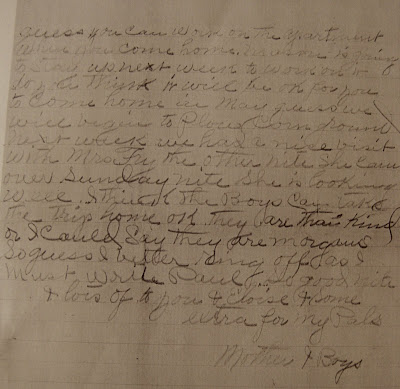 guess you can work on the apartment
when you come home. is going
to start up next week to work on it
do you think it will be ok for you
to come home in May guess we
will begin to Plow Corn ground
next week we had a nice visit
with Mrs Fry the other nite She Cam
over Sunday nite She is looking
well. I think the Boys Can take
the trip home ok they are that Kind
or I Could Say they are morgans
So guess I better ring off as I
Must write Paul, so good nite
& lots of to you & Eloise & some
extra for My Pals
Mother & Boys